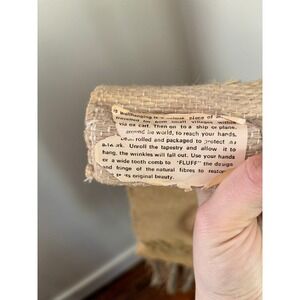 wallhanging is a unique piece of
travelled far from small villages within
via ox cart. Then on to a ship or plane,
around the world, to reach your hands,
been rolled and packaged to protect
Unroll the tapestry and allow it
to hang, the wrinkles will fall out. Use your hands
or a wide tooth comb to "FLUFF" the design
and fringe of the natural fibres to restore
its original beauty.